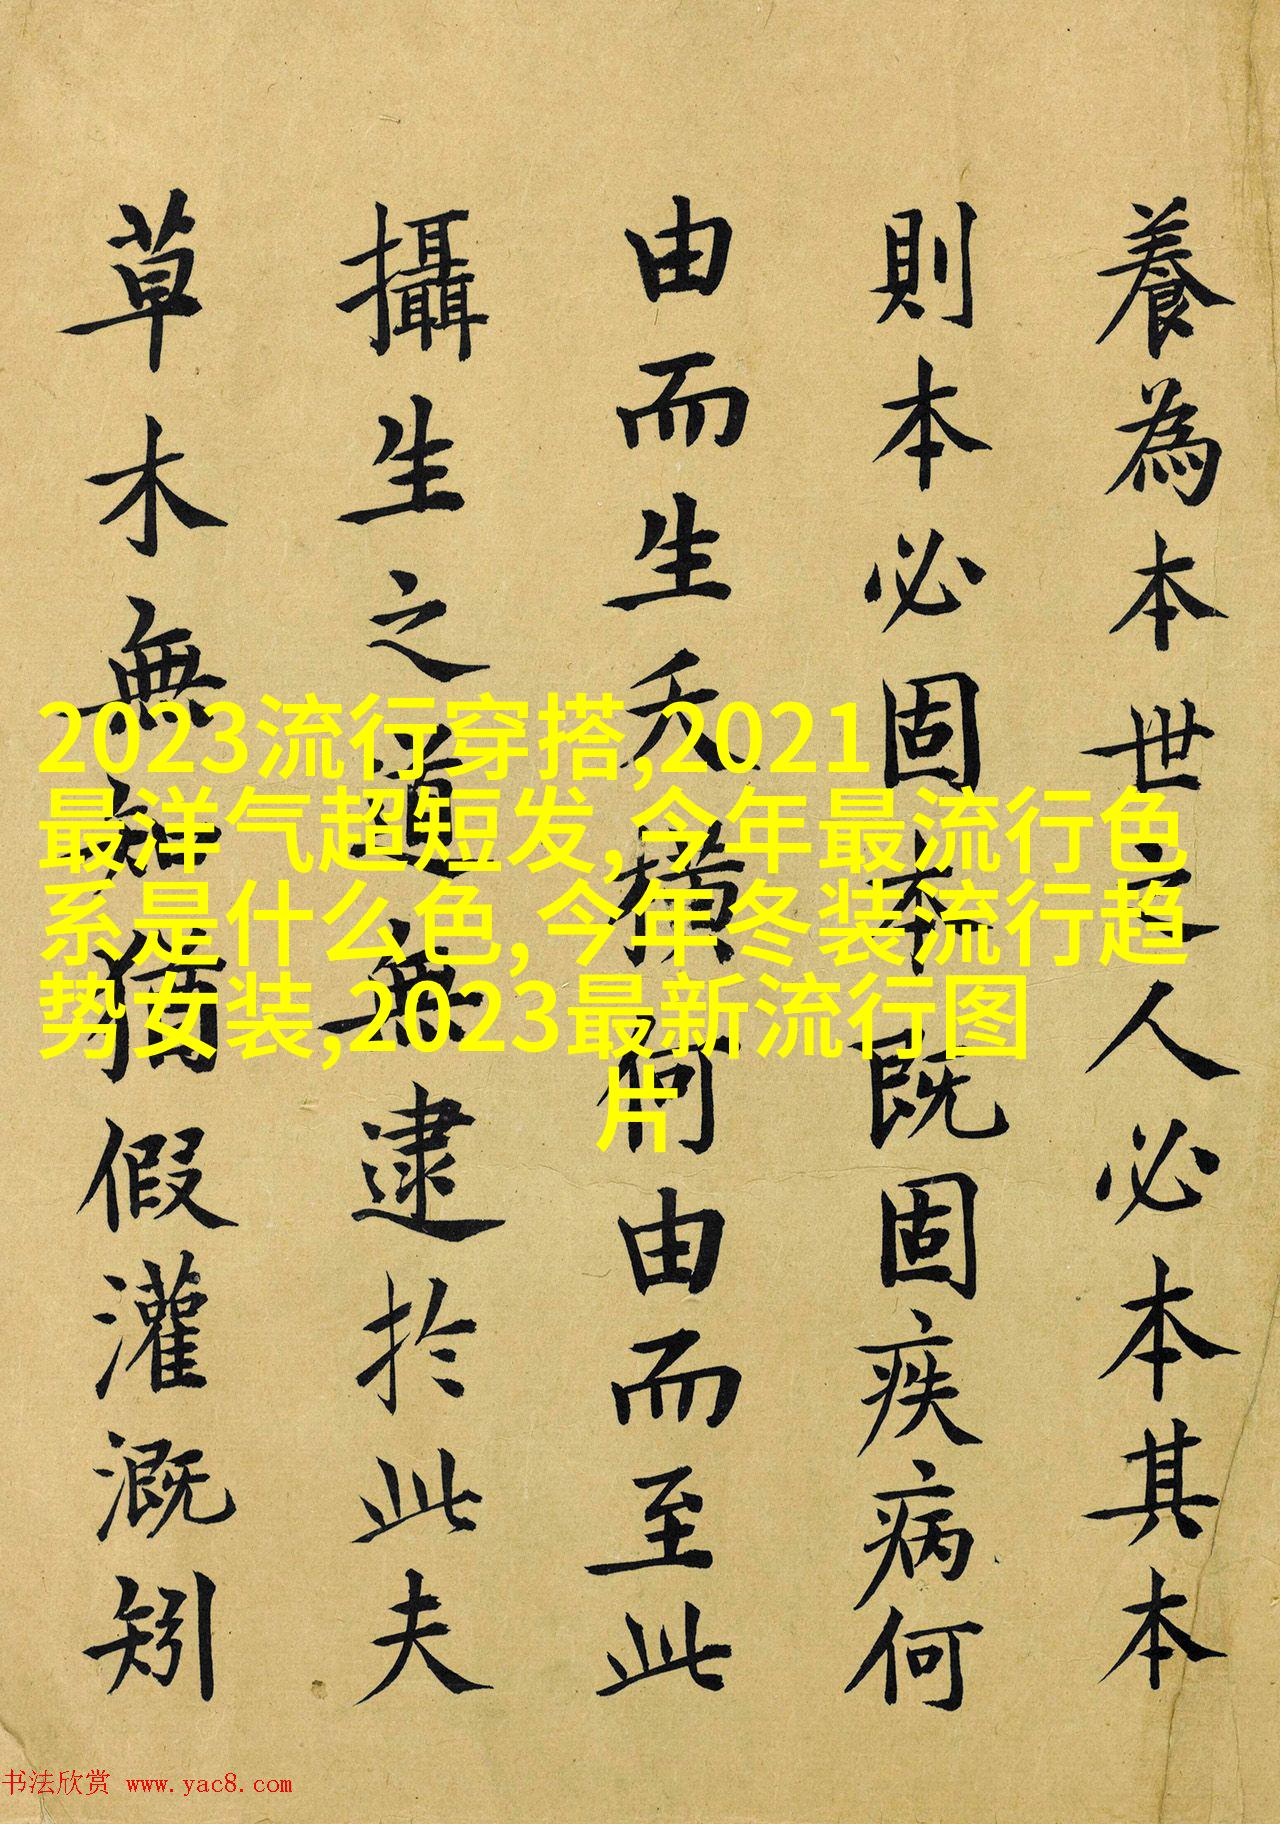 養為本世之人必本其本
則本必固本既固疾病何
由而生夭橫何由而至此
攝生之道無逮於此夫
草木無知猶假灌溉矧
2023流行穿搭,2021
最洋气超短发,今年最流行色
系是什么色,今年冬装流行趋
势女装,2023最新流行图
片
书法欣赏 www.yac8.com